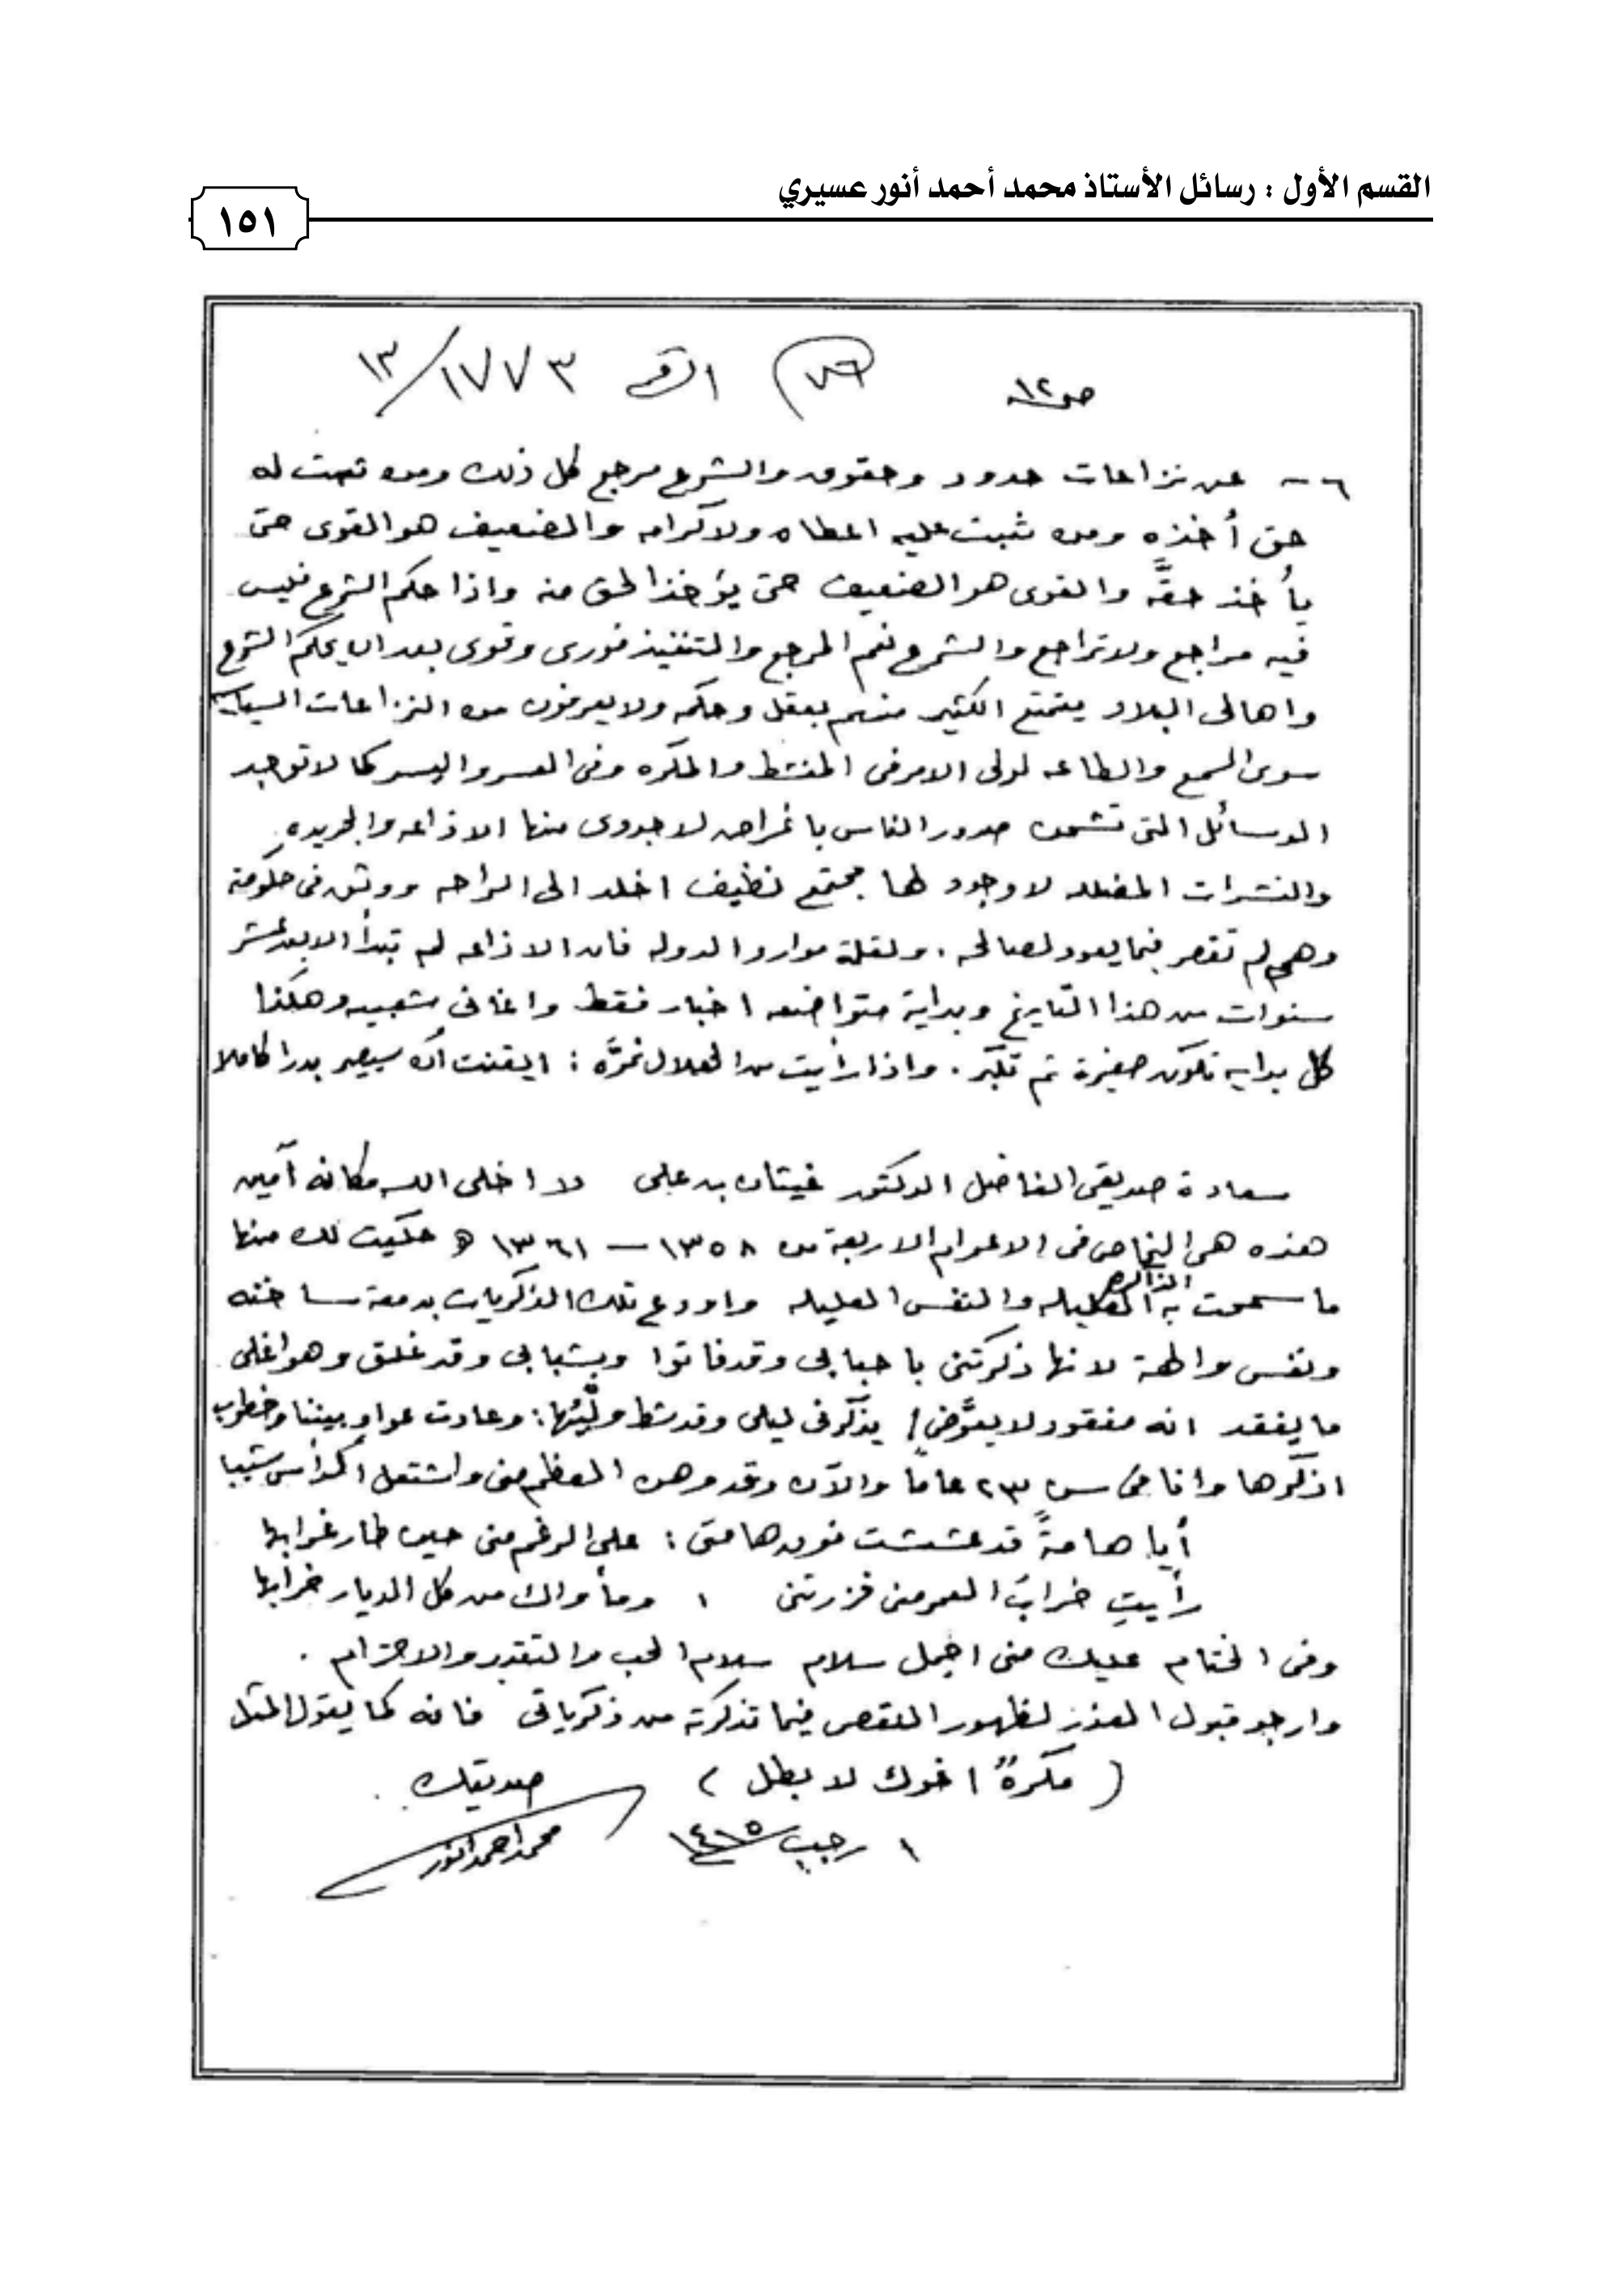 القسم الأول : رسائل الأستاذ محمد أحمد أنور عسيري
١٥١
ص١٢ ٧٦ الرقم ١٧٧٣/١٣
٦ - عن نزاعات حدود وحقوق والشرع مرجع كل ذلك ومن ثبت له
حق أخذه ومن ثبت عليه اعطاه ولا كرامه والضعيف هو القوى حتى
يأخذ حقَّه والقوى هو الضعيف حتى يؤخذ الحق منه واذا حكم الشرع فليس
فيه مراجع ولا تراجع والشرع نعم المرجع والتنفيذ فورى وقوى بعد ان يحكم الشرع
واهالى البلاد يتمتع الكثير منهم بعقل وحكمه ولا يعرفون من النزاعات السياسيه
سوى السمع والطاعه لولى الامر فى المنشط والمكره وفى العسر واليسر كما لا توجد
الوسائل التى تشحن صدور الناس باغراض لا جدوى منها الاذاعه والجريده
والنشرات المضلله لا وجود لها مجتمع نظيف اخلد الى الراحه ووثق فى حكومة
وهى لم تقصر فيما يعود لصالحه . ولقلة موارد الدوله فان الاذاعه لم تبدأ الا بعد عشر
سنوات من هذا التاريخ وبداية متواضعه اخبار فقط واغانى شعبيه وهكذا
كل بدايه تكون صغيرة ثم تكبر . واذا رأيت من الهلال نموَّه : ايقنت أن سيصير بدرا كاملا
سعادة صديقى الفاضل الدكتور غيثان بن على لا اخلى الله مكانه آمين
هذه هى النماص فى الاعوام الاربعة من ١٣٥٨ — ١٣٦١ هـ حكيت لك منها
ما سمحت به الذاكره الكليله والنفس العليله واودع تلك الذكريات بدمعة ساخنه
ونفس والهة لانها ذكرتنى باحبابى وقد فاتوا وبشبابى وقد غلق وهو اغلى
ما يفقد انه مفقود لا يعوَّض / يذكرنى ليلى وقد شط وليُّها : وعادت عواد بيننا وخطوب
اذكرها وانا فى سن ٢٣ عاماً والآن وقد وهن العظم منى واشتعل الرأس شيبا
أيا هامةً قد عششت فوق هامتى : على الرغم منى حين طار غرابها
رأيتِ خرابَ العمر منى فزرتنى ، ومأواك من كل الديار خرابها
وفى الختام عليك منى اجمل سلام سلام الحب والتقدير والاحترام .
وارجو قبول العذر لظهور النقص فيما تذكرته من ذكرياتى فانه كما يقول المثل
( مكرهٌ اخوك لا بطل ) صديقك
١ رجب ١٤١٥ محمد احمد انور